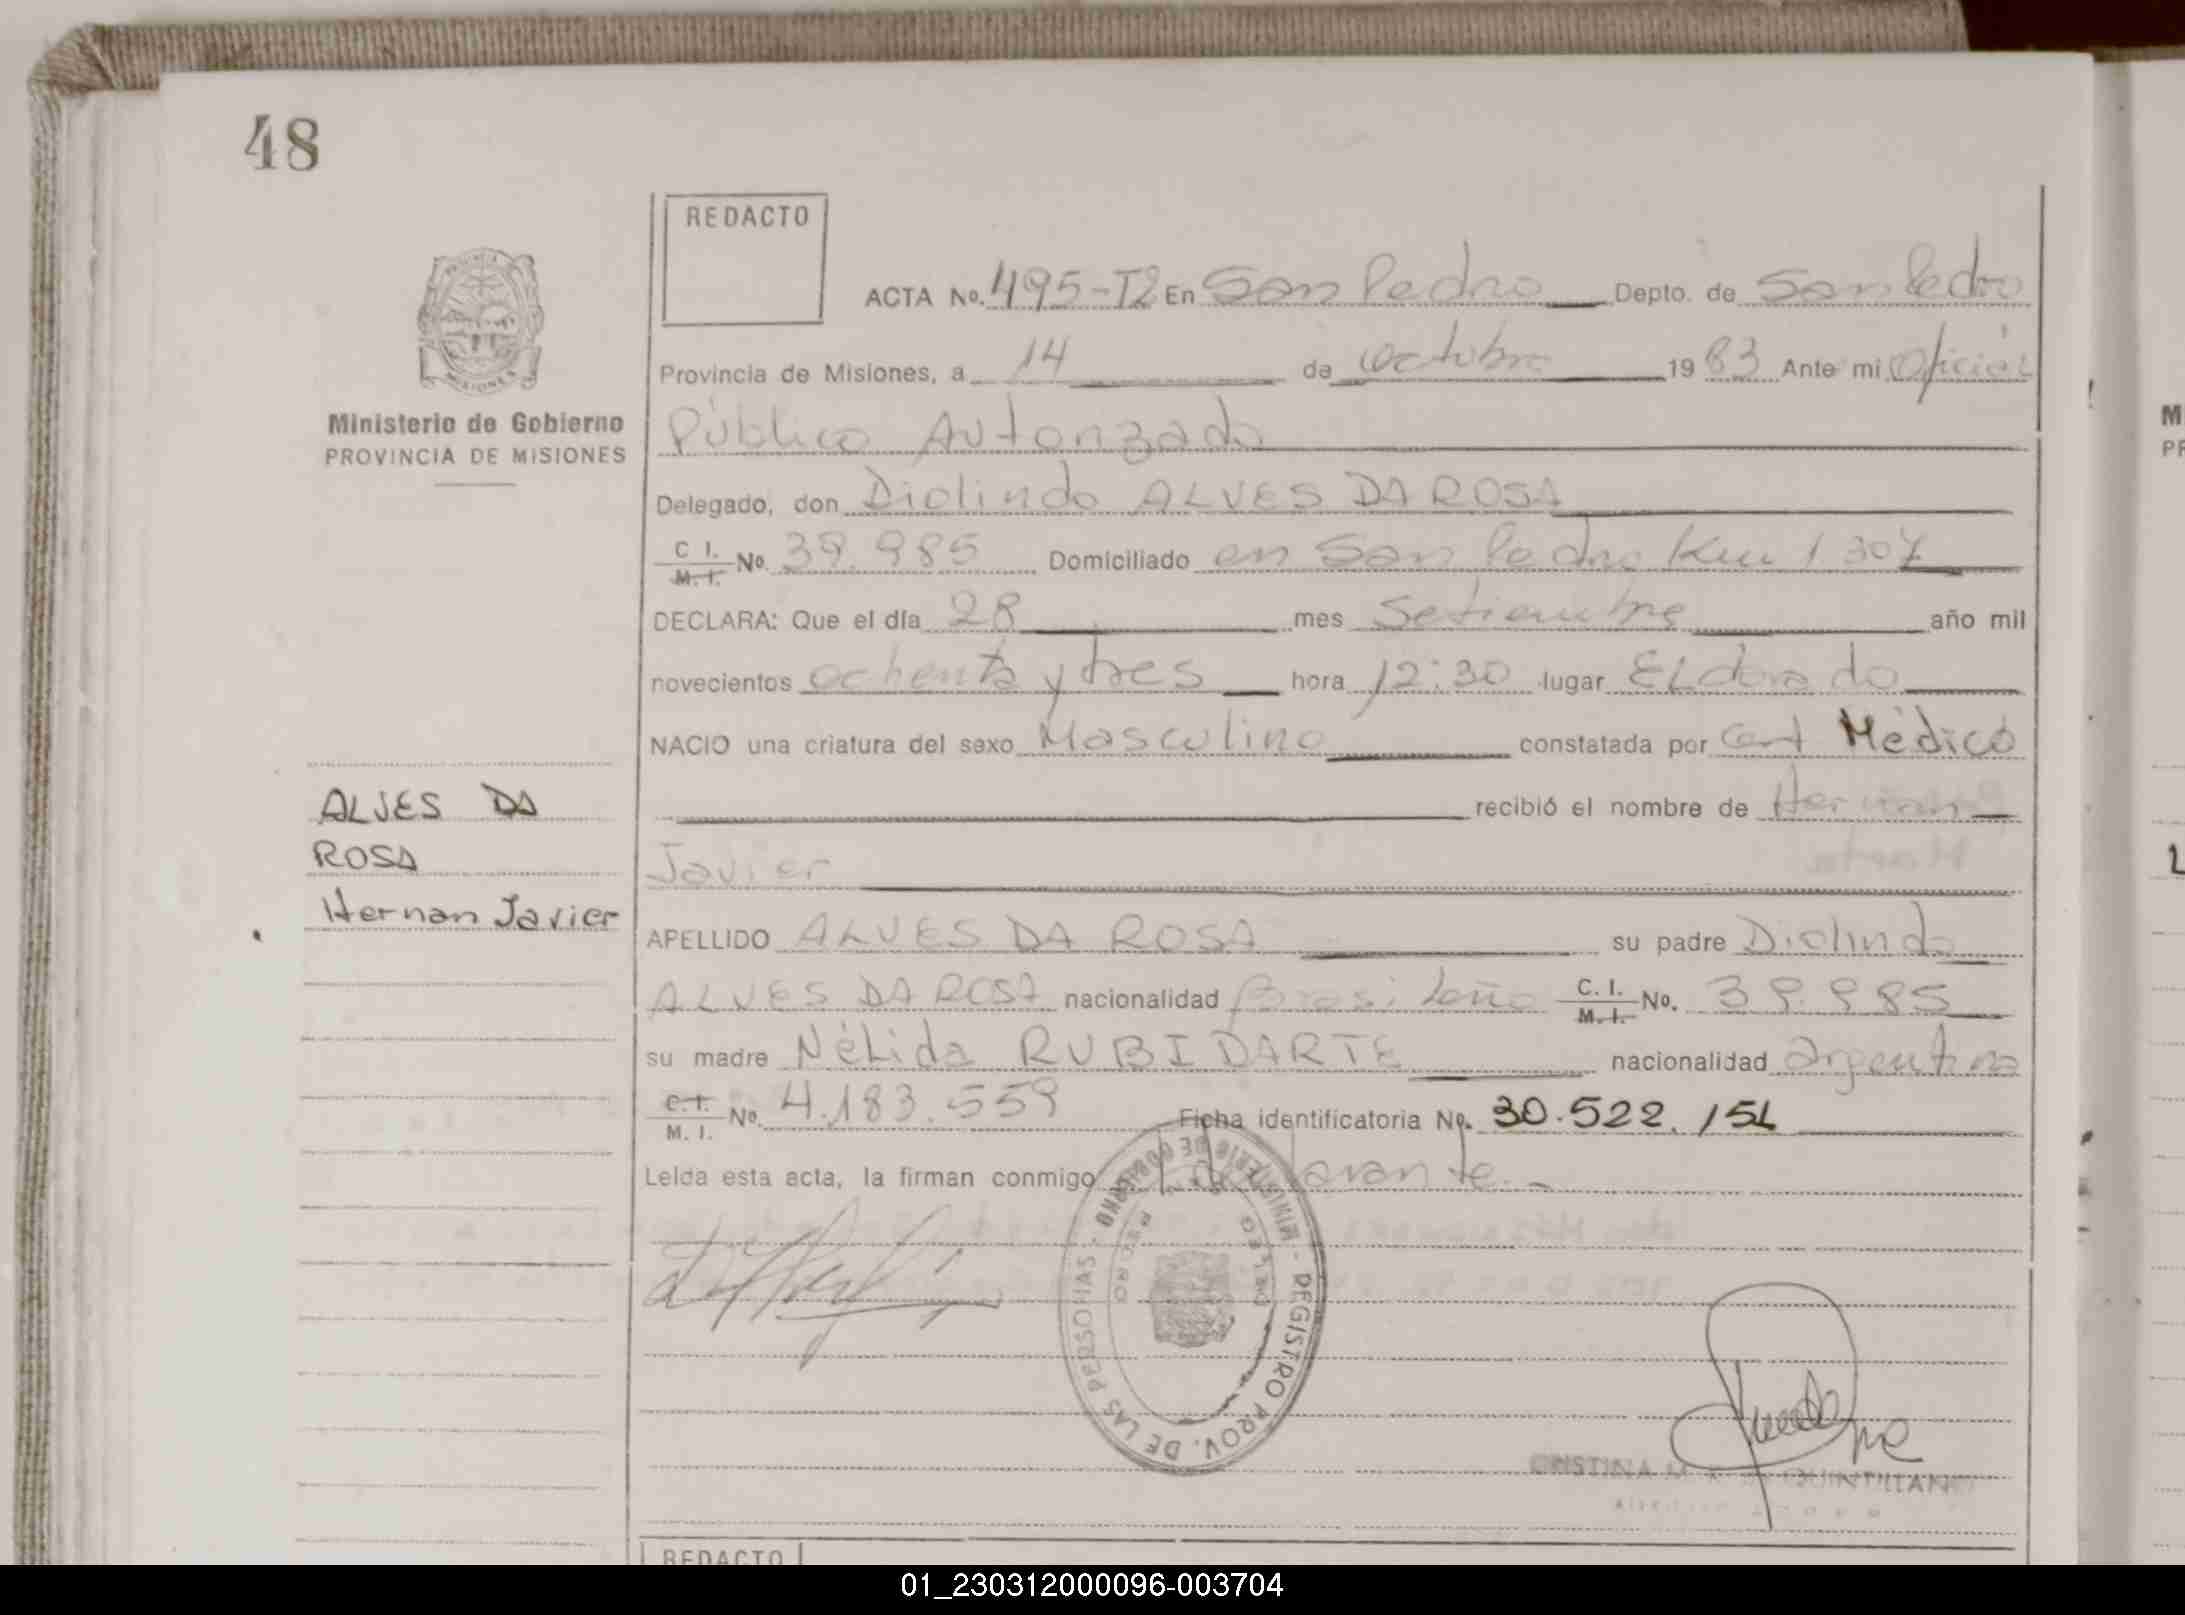 48
REDACTO
ACTA No. 495-T2 En San Pedro Depto. de San Pedro
Provincia de Misiones, a 14 de octubre 1983 Ante mi Oficial
Público Autorizado
Ministerio de Gobierno
PROVINCIA DE MISIONES
Delegado, don Diolindo ALVES DA ROSA
C I. M. I. No. 39.985 Domiciliado en San Pedro Km 1307
DECLARA: Que el día 28 mes Setiembre año mil
novecientos ochenta y tres hora 12:30 lugar ELdorado
NACIO una criatura del sexo Masculino constatada por Cert Médico
recibió el nombre de Hernan
Javier
ALVES DA
ROSA
Hernan Javier
APELLIDO ALVES DA ROSA su padre Diolindo
ALVES DA ROSA nacionalidad Brasileño C. I. M. I. No. 39.985
su madre NéLida RUBIDARTE nacionalidad argentina
C. I. M. I. No. 4.183.559 Ficha identificatoria No. 30.522.154
Leída esta acta, la firman conmigo el declarante.-
MINISTERIO DE GOBIERNO - REGISTRO PROV. DE LAS PERSONAS -
CRISTINA M. DE QUINTILLAN
REDACTO
M
PR
L
01_230312000096-003704